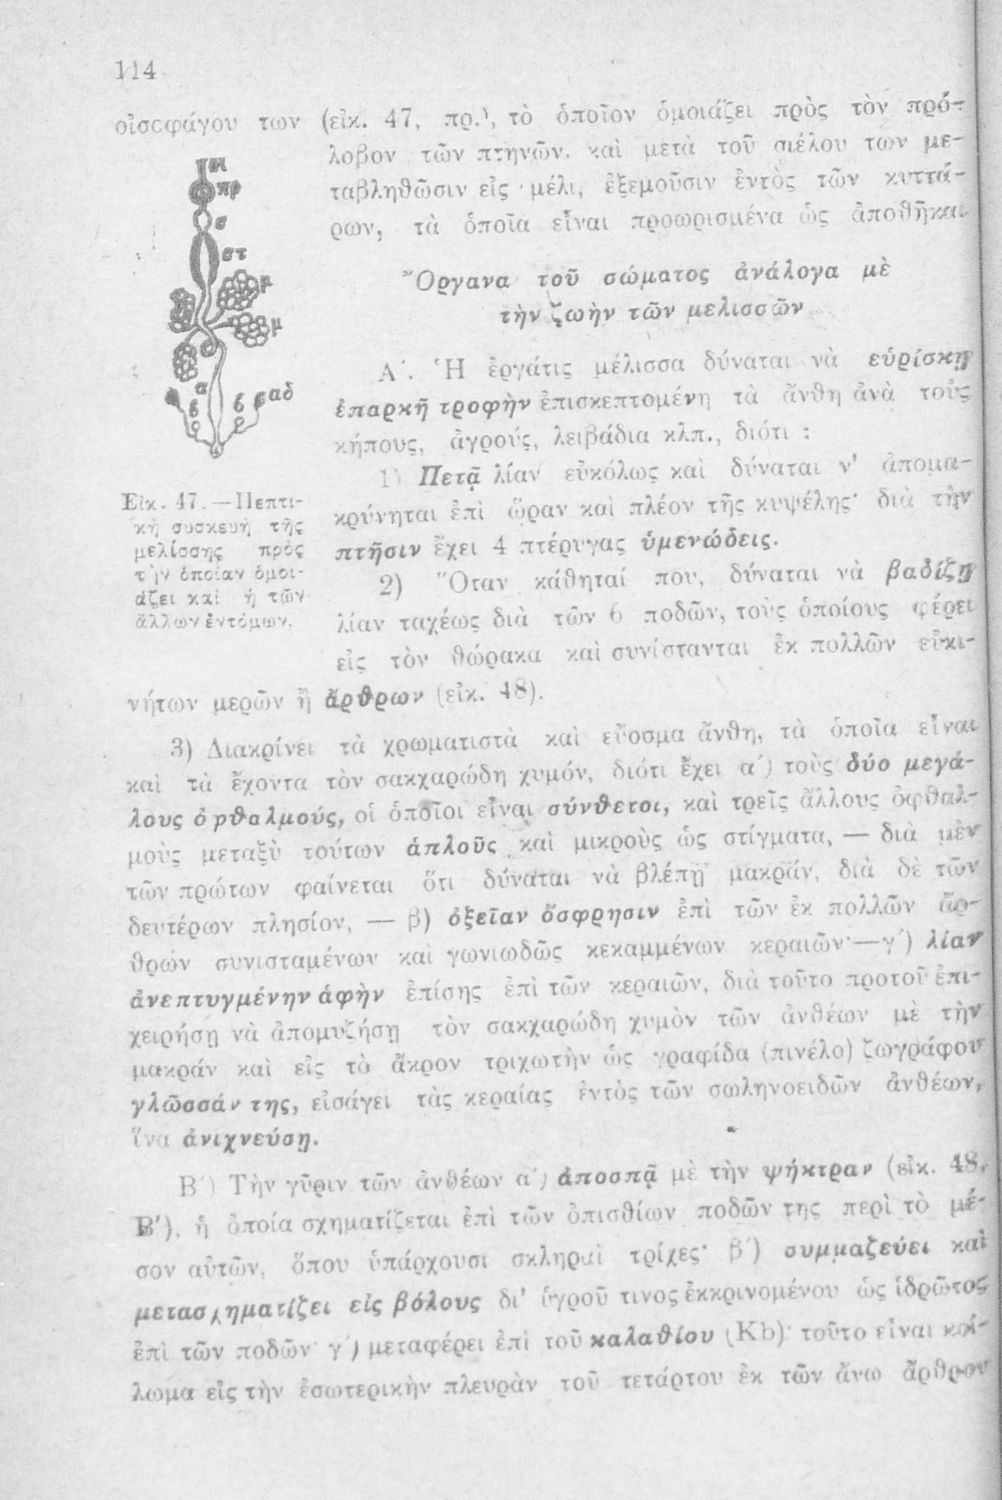 114
οἰσοφάγου των (εἰκ. 47, πρ.), τὸ ὁποῖον ὁμοιάζει πρὸς τὸν πρό-
λοβον τῶν πτηνῶν, καὶ μετὰ τοῦ σιέλου των με-
ταβληθῶσιν εἰς μέλι, ἐξεμοῦσιν ἐντὸς τῶν κυττά-
ρων, τὰ ὁποῖα εἶναι προωρισμένα ὡς ἀποθῆκαι.
οι
πρ
σ
στ
μ
μ
α
β
β
αδ
Εἰκ. 47.—Πεπτι-
κὴ συσκευὴ τῆς
μελίσσης πρὸς
τὴν ὁποίαν ὁμοι-
άζει καὶ ἡ τῶν
ἄλλων ἐντόμων.
Ὄργανα τοῦ σώματος ἀνάλογα μὲ
τὴν ζωὴν τῶν μελισσῶν
Α΄. Ἡ ἐργάτις μέλισσα δύναται νὰ εὑρίσκῃ
ἐπαρκῆ τροφὴν ἐπισκεπτομένη τὰ ἄνθη ἀνὰ τοὺς
κήπους, ἀγρούς, λειβάδια κλπ., διότι :
1) Πετᾷ λίαν εὐκόλως καὶ δύναται ν' ἀπομα-
κρύνηται ἐπὶ ὥραν καὶ πλέον τῆς κυψέλης· διὰ τὴν
πτῆσιν ἔχει 4 πτέρυγας ὑμενώδεις.
2) Ὅταν κάθηταί που, δύναται νὰ βαδίζῃ
λίαν ταχέως διὰ τῶν 6 ποδῶν, τοὺς ὁποίους φέρει
εἰς τὸν θώρακα καὶ συνίστανται ἐκ πολλῶν εὐκι-
νήτων μερῶν ἢ ἄρθρων (εἰκ. 48).
3) Διακρίνει τὰ χρωματιστὰ καὶ εὔοσμα ἄνθη, τὰ ὁποῖα εἶναι
καὶ τὰ ἔχοντα τὸν σακχαρώδη χυμόν, διότι ἔχει α΄) τοὺς δύο μεγά-
λους ὀφθαλμούς, οἱ ὁποῖοι εἶναι σύνθετοι, καὶ τρεῖς ἄλλους ὀφθαλ-
μοὺς μεταξὺ τούτων ἁπλοῦς καὶ μικροὺς ὡς στίγματα, — διὰ μὲν
τῶν πρώτων φαίνεται ὅτι δύναται νὰ βλέπῃ μακράν, διὰ δὲ τῶν
δευτέρων πλησίον, — β) ὀξεῖαν ὄσφρησιν ἐπὶ τῶν ἐκ πολλῶν ἄρ-
θρων συνισταμένων καὶ γωνιωδῶς κεκαμμένων κεραιῶν·—γ΄) λίαν
ἀνεπτυγμένην ἁφὴν ἐπίσης ἐπὶ τῶν κεραιῶν, διὰ τοῦτο προτοῦ ἐπι-
χειρήσῃ νὰ ἀπομυζήσῃ τὸν σακχαρώδη χυμὸν τῶν ἀνθέων μὲ τὴν
μακρὰν καὶ εἰς τὸ ἄκρον τριχωτὴν ὡς γραφίδα (πινέλο) ζωγράφου
γλῶσσάν της, εἰσάγει τὰς κεραίας ἐντὸς τῶν σωληνοειδῶν ἀνθέων,
ἵνα ἀνιχνεύσῃ.
Β΄) Τὴν γῦριν τῶν ἀνθέων α΄) ἀποσπᾷ μὲ τὴν ψήκτραν (εἰκ. 48,
Β΄), ἡ ὁποία σχηματίζεται ἐπὶ τῶν ὀπισθίων ποδῶν της περὶ τὸ μέ-
σον αὐτῶν, ὅπου ὑπάρχουσι σκληραὶ τρίχες· β΄) συμμαζεύει καὶ
μετασχηματίζει εἰς βόλους δι' ὑγροῦ τινος ἐκκρινομένου ὡς ἱδρῶτος
ἐπὶ τῶν ποδῶν· γ΄) μεταφέρει ἐπὶ τοῦ καλαθίου (Kb)· τοῦτο εἶναι κοί-
λωμα εἰς τὴν ἐσωτερικὴν πλευρὰν τοῦ τετάρτου ἐκ τῶν ἄνω ἄρθρου